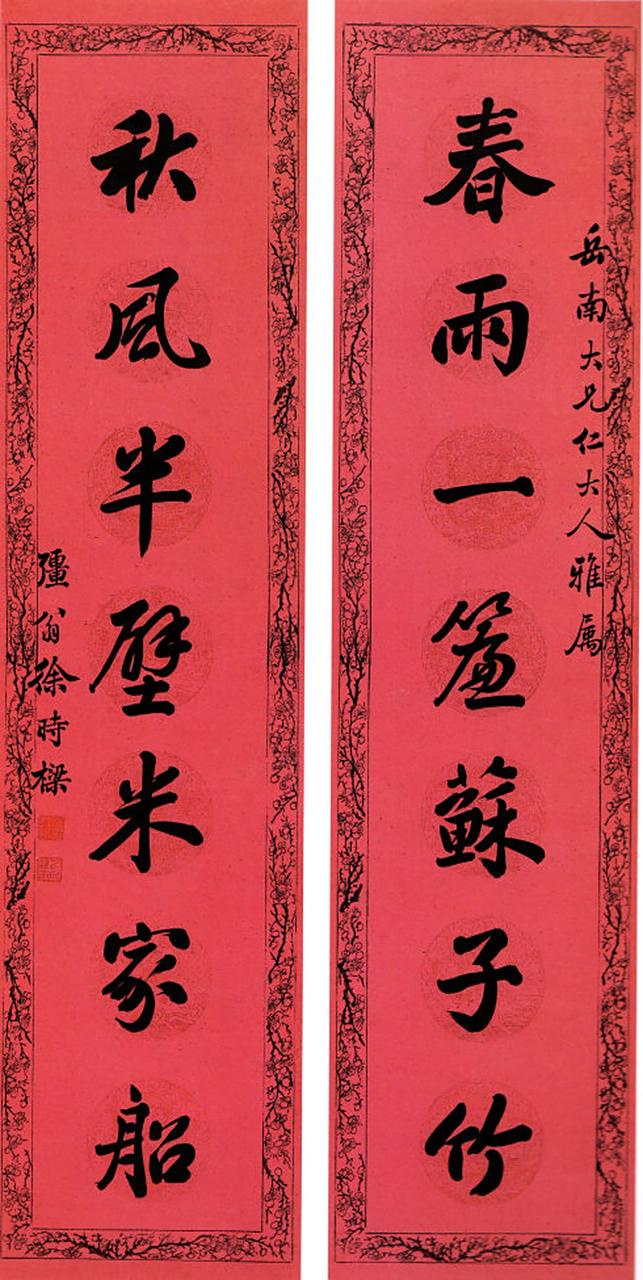 岳南大兄仁大人雅属
春雨一簾蘇子竹
秋風半壁米家船
彊翁徐時樑